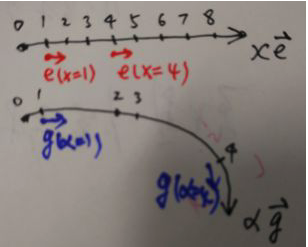 0 1 2 3 4 5 6 7 8
x e⃗
e(x=1) e(x=4)
0 1 2 3
4
g(α=1)
g(α=4)
α g⃗